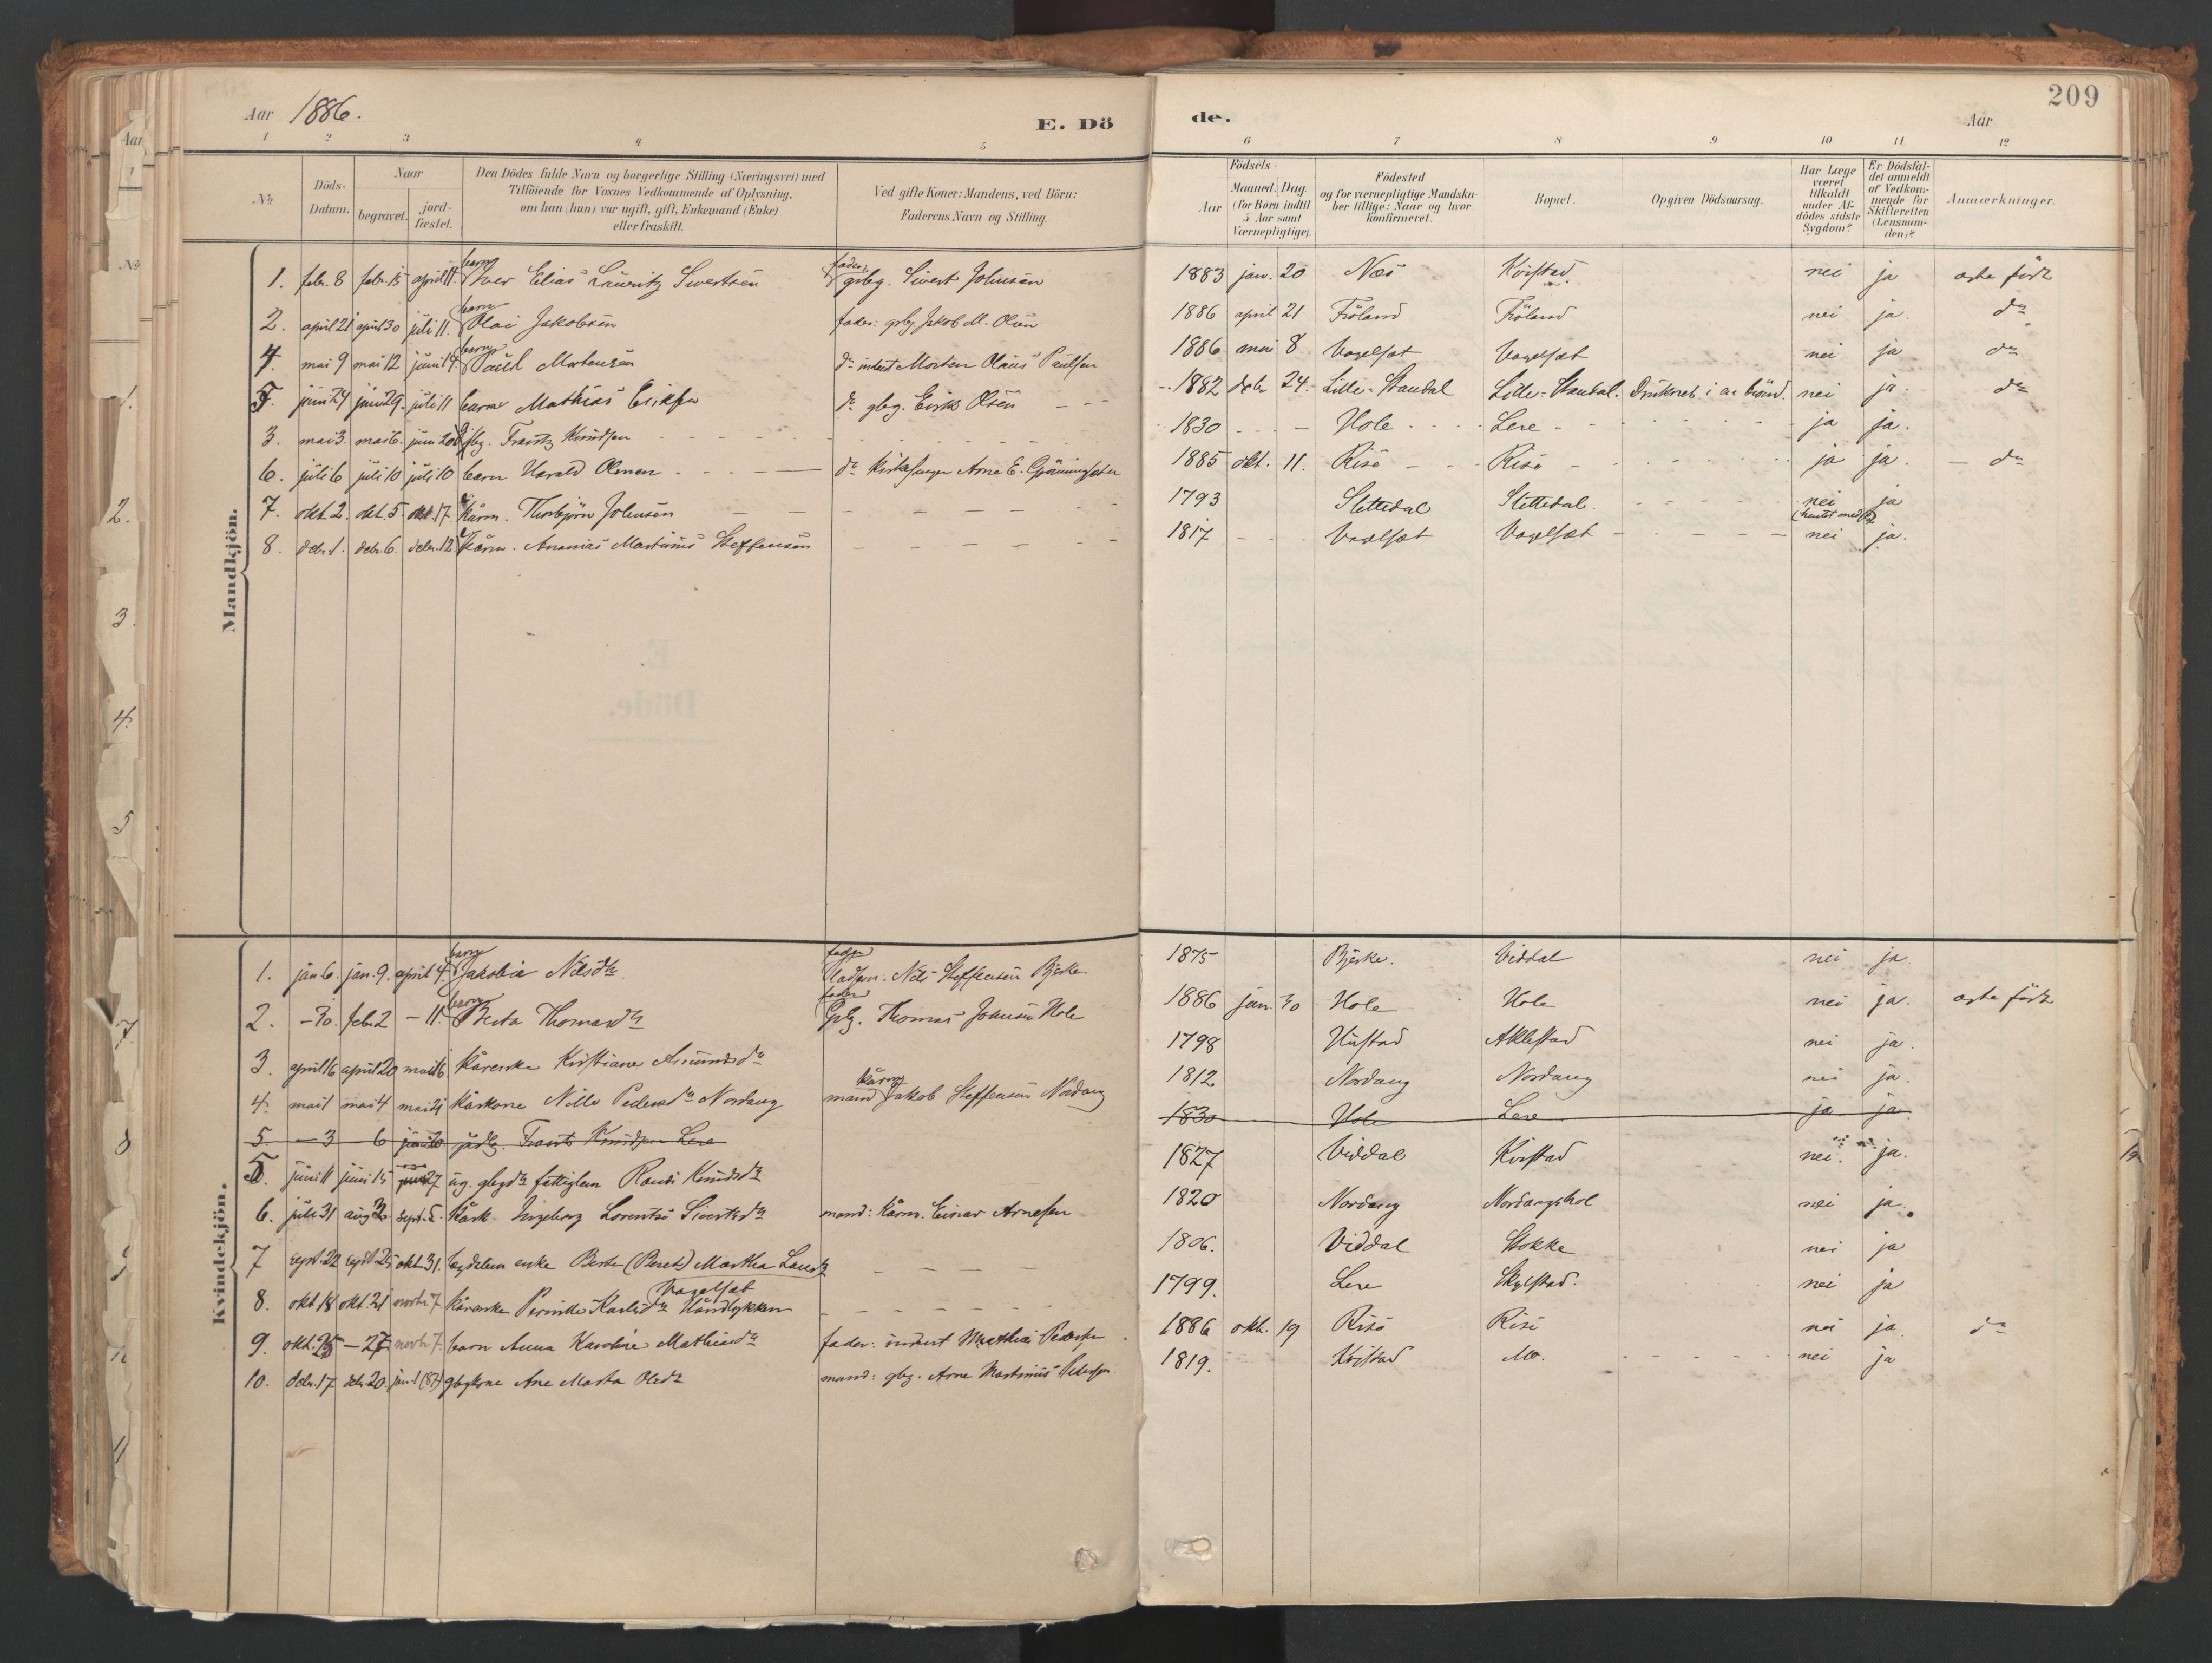 209
Aar 1886. E. Dö de. Aar
1 2 3 4 5 6 7 8 9 10 11 12
No Döds-Datum. Naar begravet. jord-fæstet. Den Dödes fulde Navn og borgerlige Stilling (Næringsvei) med Tilföiende for Voxnes Vedkommende af Oplysning, om han (hun) var ugift, gift, Enkemand (Enke) eller fraskilt. Ved gifte Koner: Mandens, ved Börn: Faderens Navn og Stilling. Födsels- Aar Maaned. Dag. (for Börn indtil 5 Aar samt Værnepligtige). Födested og for værnepligtige Mandskaber tillige: Naar og hvor konfirmeret. Bopæl. Opgiven Dödsaarsag. Har Læge været tilkaldt under Afdödes sidste Sygdom? Er Dödsfaldet anmeldt af Vedkommende for Skifteretten (Lensmanden)? Anmærkninger.
Mandkjön.
1. febr. 8 febr. 15 april 11. barn Iver Elias Lauritz Sivertsen fader: gbrg. Sivert Johnsen 1883 jan. 20 Næs Kvistad. nei ja ægte född
2. april 21 april 30 juli 11. barn Olai Jakobsen fader: gbrg. Jakob M. Olsen 1886 april 21 Fröland Fröland nei ja. do
4. mai 9 mai 12 juni 14 barn Paul Mortensen do inderst Morten Olaus Paulsen 1886 mai 8 Vagelsæt Vagelsæt nei ja do
5. juni 24 juni 29. juli 11 barn Mathias Eriksen do gbrg. Erik Olsen 1882 24. Lille-Standal Lille-Standal. Druknet i en brönd. nei ja. do
3. mai 3. mai 6. juni 20 Frantz Knudsen 1830 Hole Lere ja ja.
6. juli 6 juli 10 juli 10 barn Harald Olman do Kirkesanger Arne E. 1885 okt. 11. Risö Risö ja ja. do
7. okt. 2. okt. 5. okt. 17. Kårm. Thorbjörn Johnsen 1793 Slettedal Slettedal. nei ja
8. decbr. 1. decbr. 6. decbr. 12 Kårm. Ananias Martinus Steffensen 1817 Vagelsæt Vagelsæt nei ja.
Kvindekjön.
1. jan 6. jan. 9. april 4. barn Jakobia Nilsdtr fader Nils Steffensen Bjerke. 1875 Bjerke. Viddal nei ja
2. – 30. febr. 2 – 11. barn Berta Thomasdtr fader Gbrg. Thomas Johnsen Hole 1886 jan. 30 Hole Hole nei ja. ægte född
3. april 16 april 20 mai 16 kårenke Kristiane Amundsdr 1798 Hustad Aklestad nei ja.
4. mai 1 mai 4 mai 21 kårkone Nille Pedersdr Nordang mand kårm Jakob Steffensen Nordang 1812 Nordang Nordang nei ja.
5. – 3 – 6 juni 20 Frants Knudsen Lere 1830 Hole Lere ja ja
5. juni 11 juni 15 27 ug. gbrgdr fattiglem Randi Knudsdr 1827 Viddal Kvistad nei. ja.
6. juli 31 aug 3 sept. 5. kårk. Ingeborg Lorentse Sivertsdr mand: kårm. Einar Arnesen 1820 Nordang Nordangshol nei ja.
7 sept. 22 sept. 25 okt 31. bygdelem enke Berte (Beret) Martha 1806. Viddal Stokke nei ja
8. okt 18 okt. 21 novbr 7. kårenke Pernille Karlsdr Vagelsæt 1799. Lere Skylstad. nei ja
9. okt. 25 – 27 novbr 7. barn Anna Karoline Mathiasdr fader: inderst Mathias Pedersen 1886 okt. 19 Risö Risö nei ja do
10. decbr. 17 decbr. 20. jan. 1 (87) gbrgkone Ane Marta Olsdr mand: gbrg. Arne Martinus Pedersen 1819. Kvistad Mo. nei ja